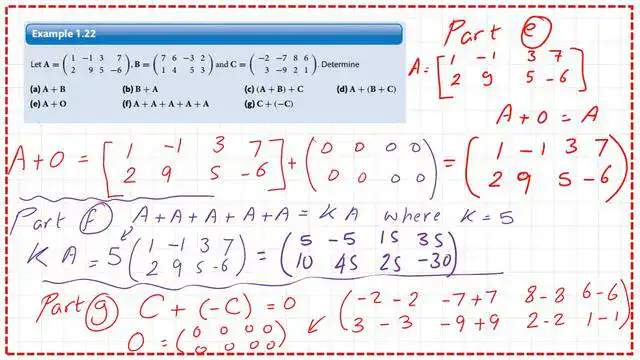 Example 1.22
Let A = ( 1 -1 3 7 / 2 9 5 -6 ), B = ( 7 6 -3 2 / 1 4 5 3 ) and C = ( -2 -7 8 6 / 3 -9 2 1 ). Determine
(a) A + B (b) B + A (c) (A + B) + C (d) A + (B + C)
(e) A + O (f) A + A + A + A + A (g) C + (-C)
Part e
A = [ 1 -1 3 7 / 2 9 5 -6 ]
A + O = A
A + O = [ 1 -1 3 7 / 2 9 5 -6 ] + ( 0 0 0 0 / 0 0 0 0 ) = ( 1 -1 3 7 / 2 9 5 -6 )
Part f A + A + A + A + A = K A where K = 5
K A = 5 ( 1 -1 3 7 / 2 9 5 -6 ) = ( 5 -5 15 35 / 10 45 25 -30 )
Part g C + (-C) = 0
( -2 - 2 -7 + 7 8 - 8 6 - 6 / 3 - 3 -9 + 9 2 - 2 1 - 1 )
O = ( 0 0 0 0 / 0 0 0 0 )